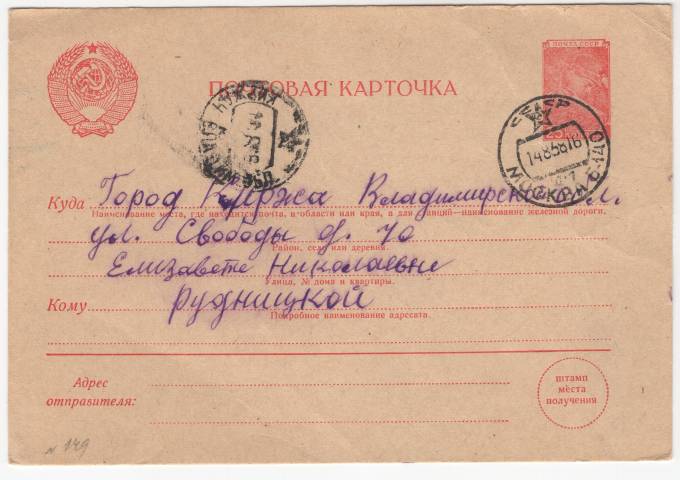 ПОЧТА СССР
ПОЧТОВАЯ КАРТОЧКА
25
14858 16
МОСКВА
Куда Город Киржа Владимирской
Наименование места, где находится почта, и области или края, а для станций—наименование железной дороги.
ул. Свободы д. 70
Район, село или деревня.
Елизавете Николаевне
Улица, № дома и квартиры.
Кому Рудницкой
Подробное наименование адресата.
Адрес
отправителя:
штамп
места
получения
N 149